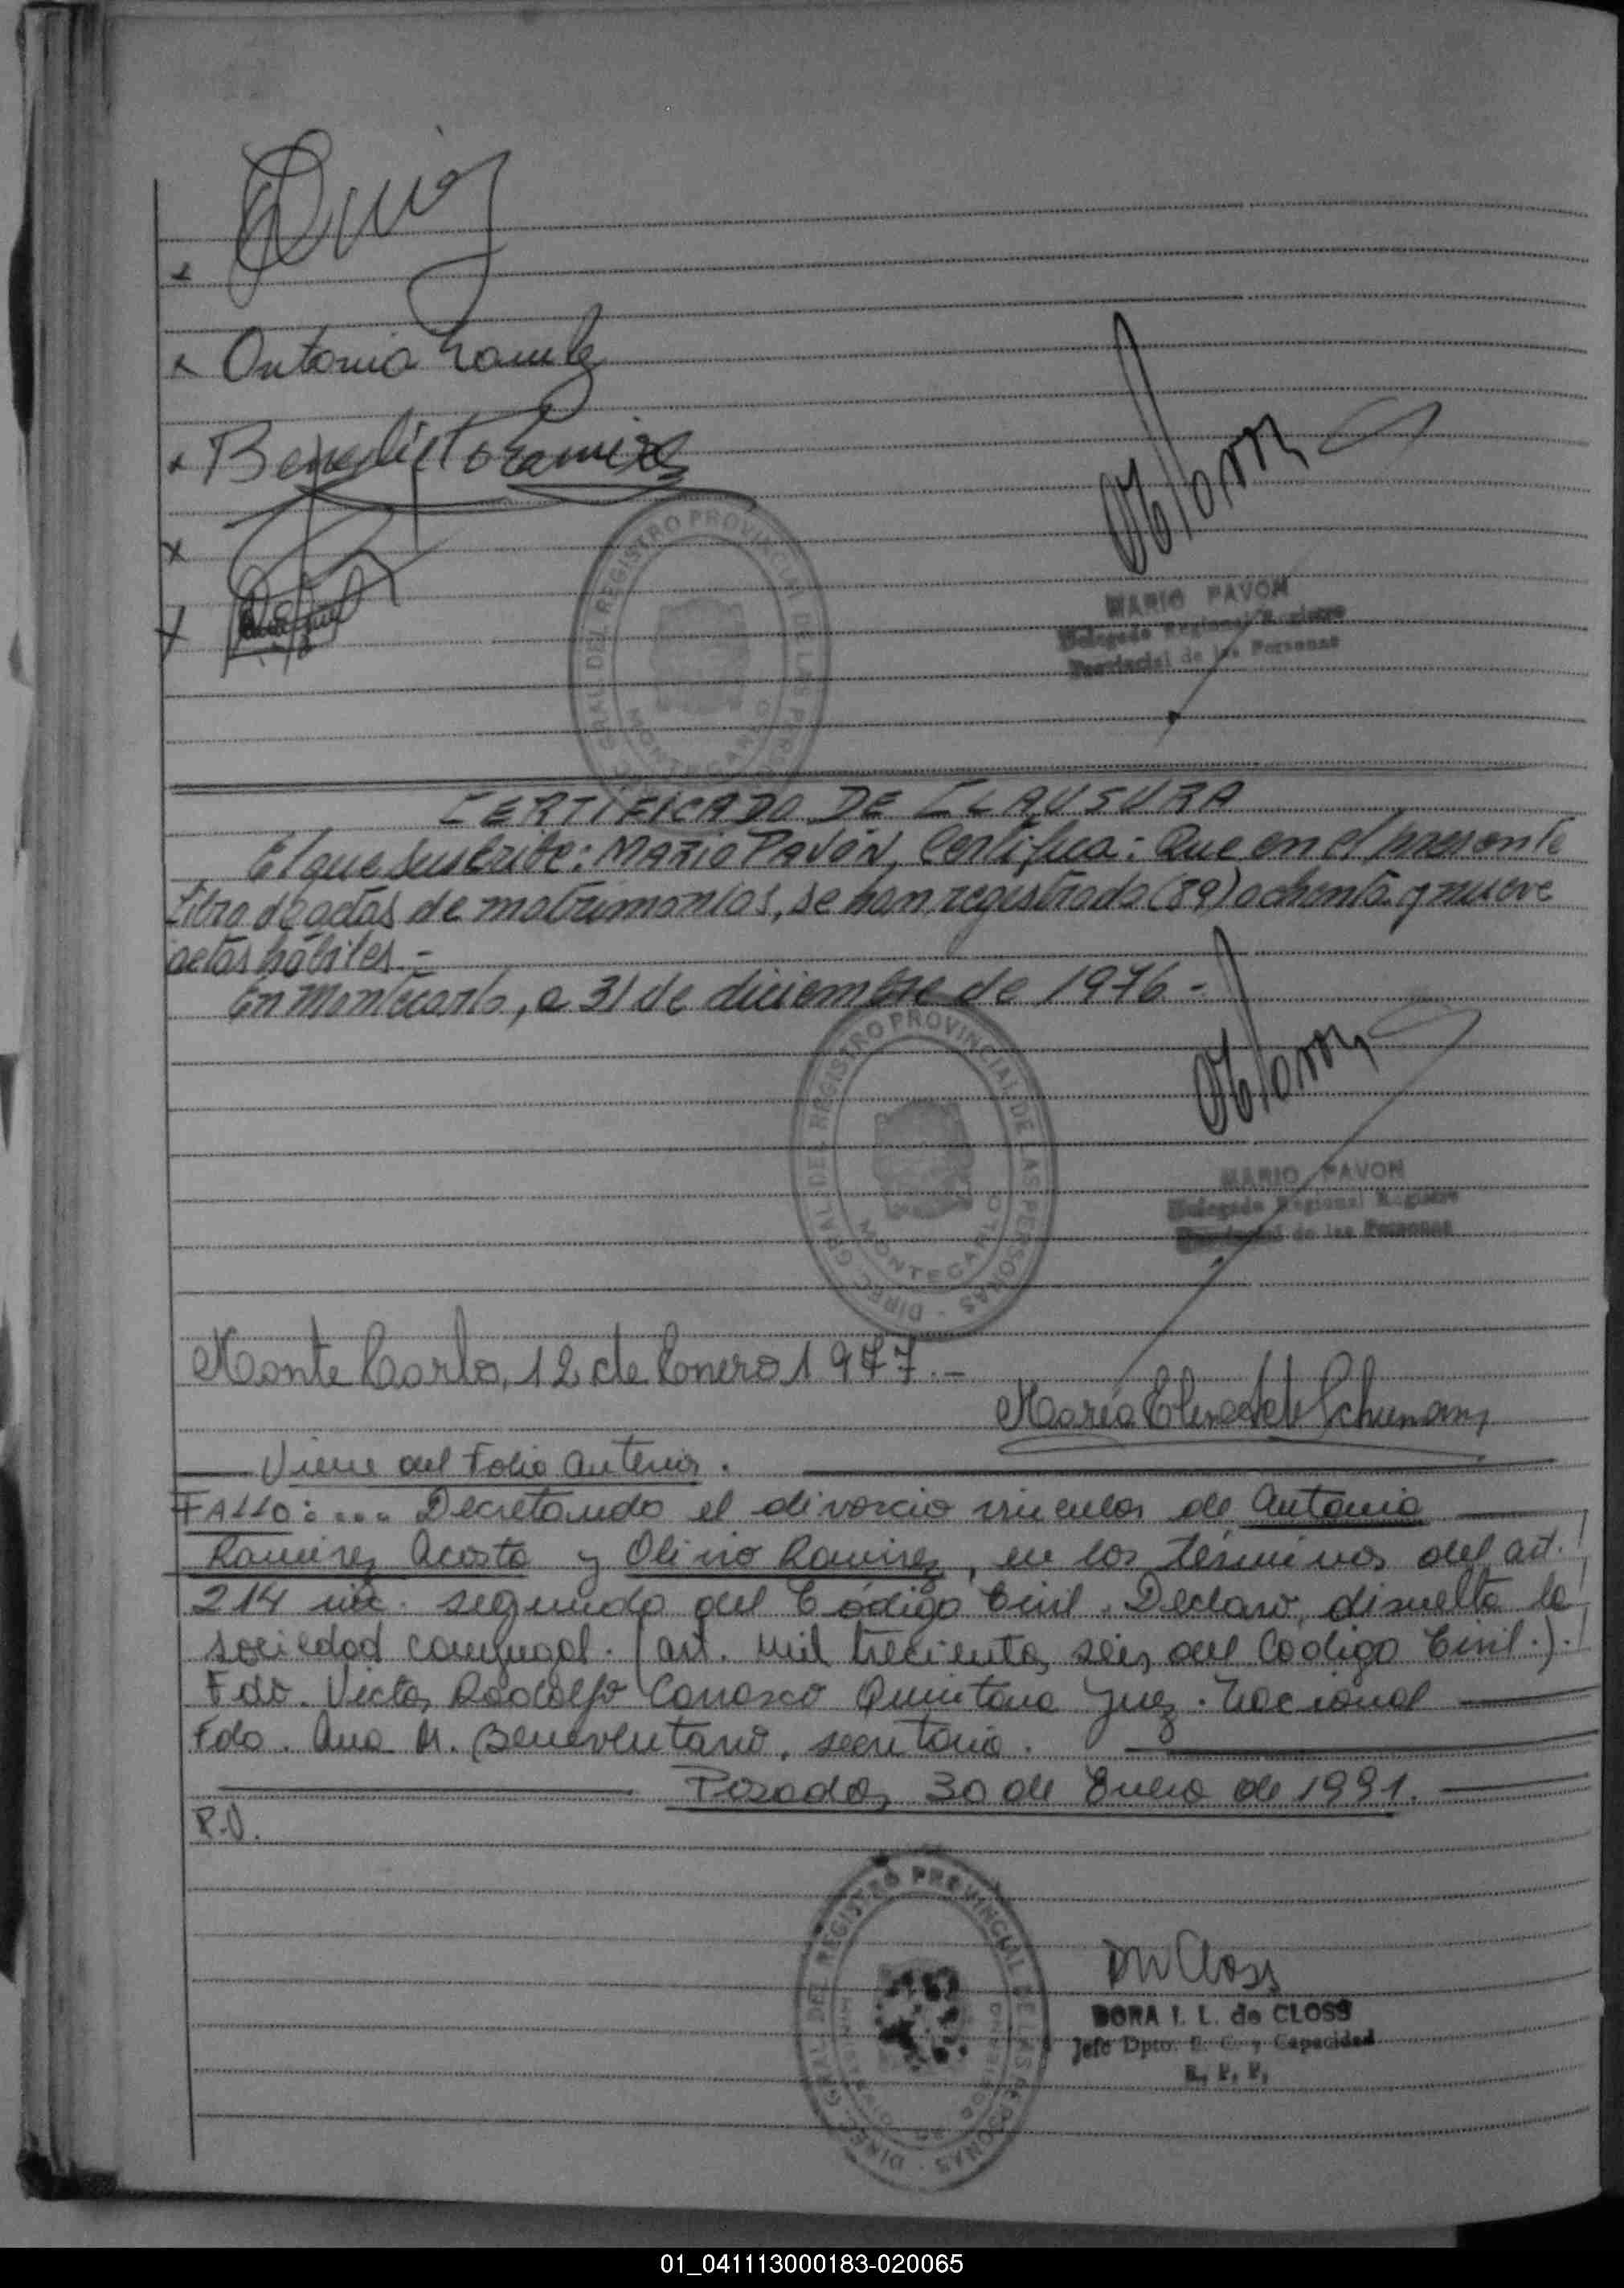 x
x Antonia Ramirez
x Benedicto Ramirez
x
x
DIREC. GRAL. DEL REGISTRO PROVINCIAL DE LAS PERSONAS
MONTECARLO
MARIO PAVON
Delegado Regional Registro
Provincial de las Personas
CERTIFICADO DE CLAUSURA
El que suscribe: MARIO PAVÓN, Certifica: Que en el presente
Libro de actas de matrimonios, se han registrado (89) ochenta y nueve
actas hábiles.-
En Montecarlo, a 31 de diciembre de 1976.-
DIREC. GRAL. DEL REGISTRO PROVINCIAL DE LAS PERSONAS
MONTECARLO
MARIO PAVON
Delegado Regional Registro
Provincial de las Personas
Monte Carlo, 12 de Enero 1977.-
María Elena de Schumann
Viene del Folio Anterior.
FALLO: .... Decretando el divorcio vincular de Antonia
Ramirez Acosta y Olirio Ramirez, en los términos del art.
214 inc. segundo del Código Civil. Declaro, disuelta la
sociedad conyugal. (art. mil trecientos seis del Código Civil.).
Fdo. Victor Rodolfo Carrasco Quintana Juez. Nacional
Fdo. Ana M. Beneventano, secretaria.
Posadas, 30 de Enero de 1991.
P.V.
DIREC. GRAL. DEL REGISTRO PROVINCIAL DE LAS PERSONAS
MINISTERIO DE GOBIERNO
DORA I. L. de CLOSS
Jefe Dpto. E. C. y Capacidad
R. P. P.
01_041113000183-020065